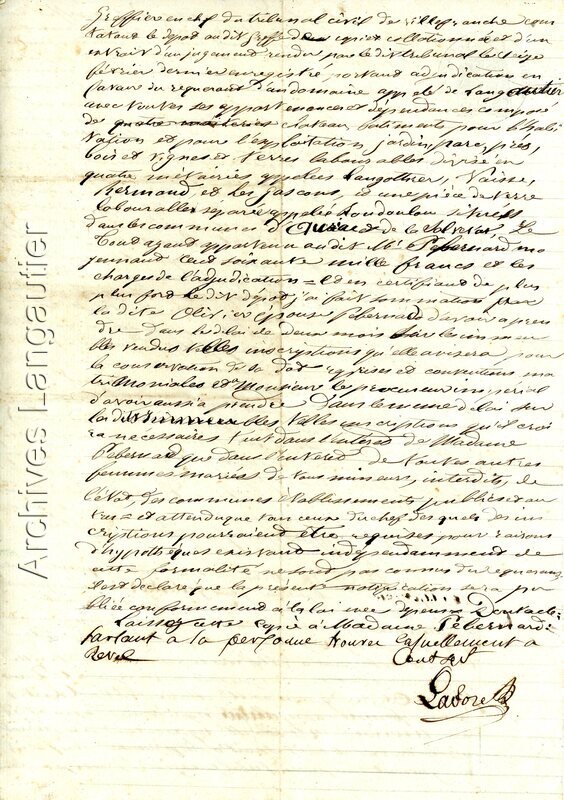 Greffier en chef du tribunal civil de villefranche cons
tatant le depot au dit greffe des copies collationnées d'un
extrait d'un jugement rendu par le dit tribunal le seize
fevrier dernier enregistré portant adjudication en
faveur du requerant d'un domaine appelé de Langautier
avec toutes ses appartenances et dépendances composé
de quatre metairies chateau, batiments pour l'habi
tation et pour l'exploitation jardin, parc, pres,
bois et vignes et terres labourables divisé en
quatre métairies appelées Langottier, Vaisse,
Bermand et les gascons, et une pièce de terre
labourable séparée appelée Loudoulou situés
dans les communes d' et de la Salvetat. Le
tout ayant appartenu au dit Mr Pebernard mo
yennant cent soixante mille francs et les
charges de l'adjudication = Et en certifiant de plus
plus fort le dit depot j'ai fait sommation pour
la dite Olivier épouse Pebernard d'avoir a pren
dre dans le délai de deux mois sur les immeu
bles vendus telles inscriptions qu'elle avisera pour
la conservation de la dot reprises et conventions ma
trimoniales et a Monsieur le procureur impérial
d'avoir aussi a prendre dans le meme délai sur
les dits immeubles telles inscriptions qu'il croi
ra necessaires tant dans l'interet de Madame
Pebernard que dans l'interet de toutes autres
femmes mariées de tous mineurs, interdits, de
l'état, des communes établissements publics et au
tres et attendu que tous ceux du chef des quels des ins
criptions pourraient être requises pour raisons
d'hypothèques existant indépendamment de
cette formalité ne sont pas connus du requerant
il est declaré que la presente notification sera pu
bliée conformement à la loi avec depens Dont acte
Laissé cette copie à Madame Pebernard
parlant a la personne trouvée casuellement a
Revel
Archives Langautier